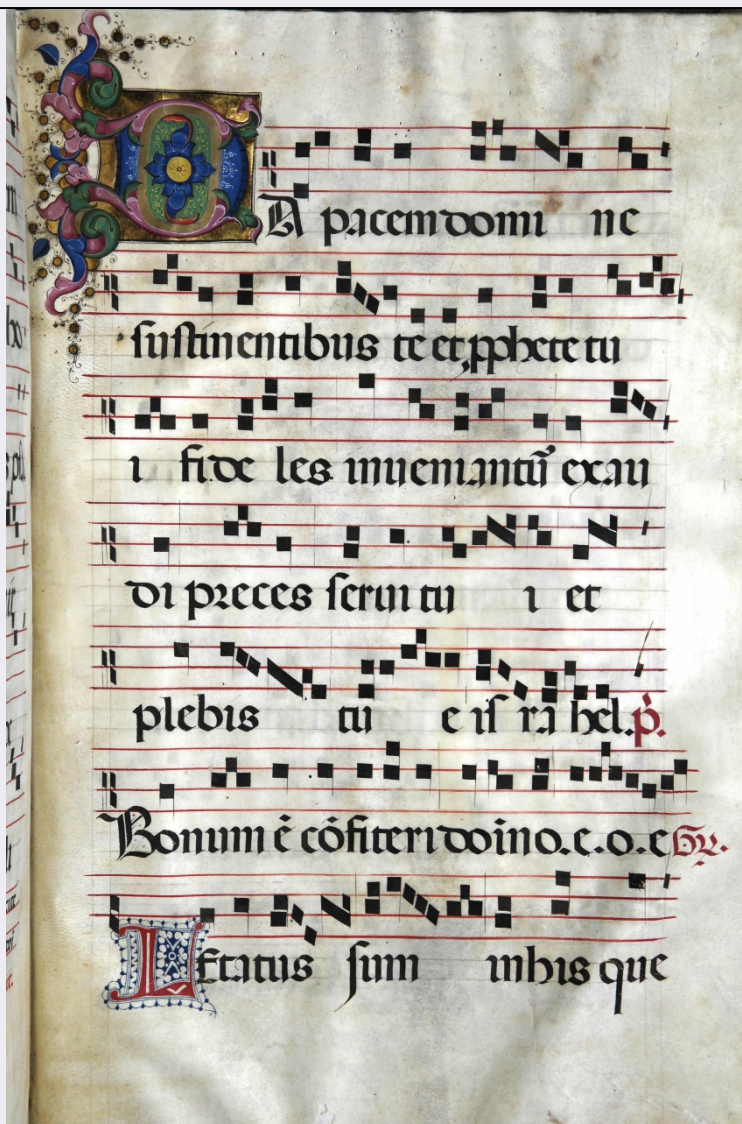 DA pacem domi ne
sustinentibus te et pphete tu
i fide les inueniantū exau
di preces serui tu i et
plebis tu e is ra hel. p̄.
Bonum ē cōfiteri doīno. e. o. e Gr.
LEtatus sum inhis que